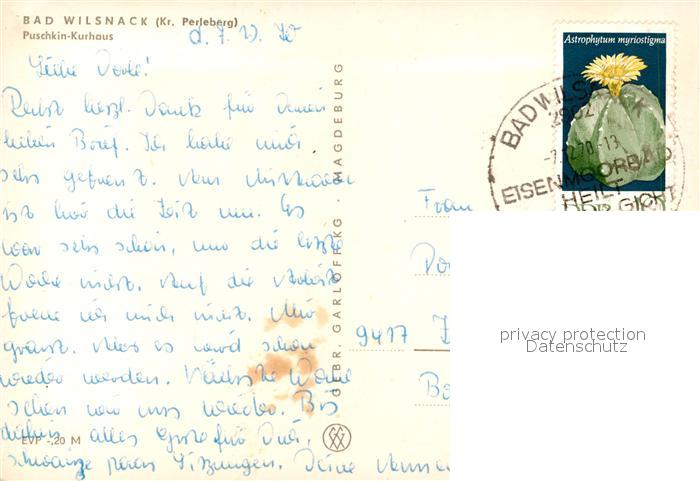 BAD WILSNACK (Kr. Perleberg)
Puschkin-Kurhaus
d. 7. 12. 70
Liebe Dorle!
Recht herzl. Dank für Deinen
lieben Brief. Ich habe mich
sehr gefreut. Nun
ist hier die Zeit um. Es
war sehr schön, nur die letzte
Woche nicht. Auf die Arbeit
freue ich mich nicht. Mir
graust. Aber es wird schon
wieder werden. Nächste Woche
sehen wir uns wieder. Bis
dahin alles Gute für Dich,
Sitzungen. Deine
EVP -,20 M
GEBR. GARLOFF KG. MAGDEBURG
Astrophytum myriostigma
BAD WILSNACK
2902
-7.12.70-13
EISENMOORBAD
HEILT
GICHT
Frau
9417
privacy protection
Datenschutz